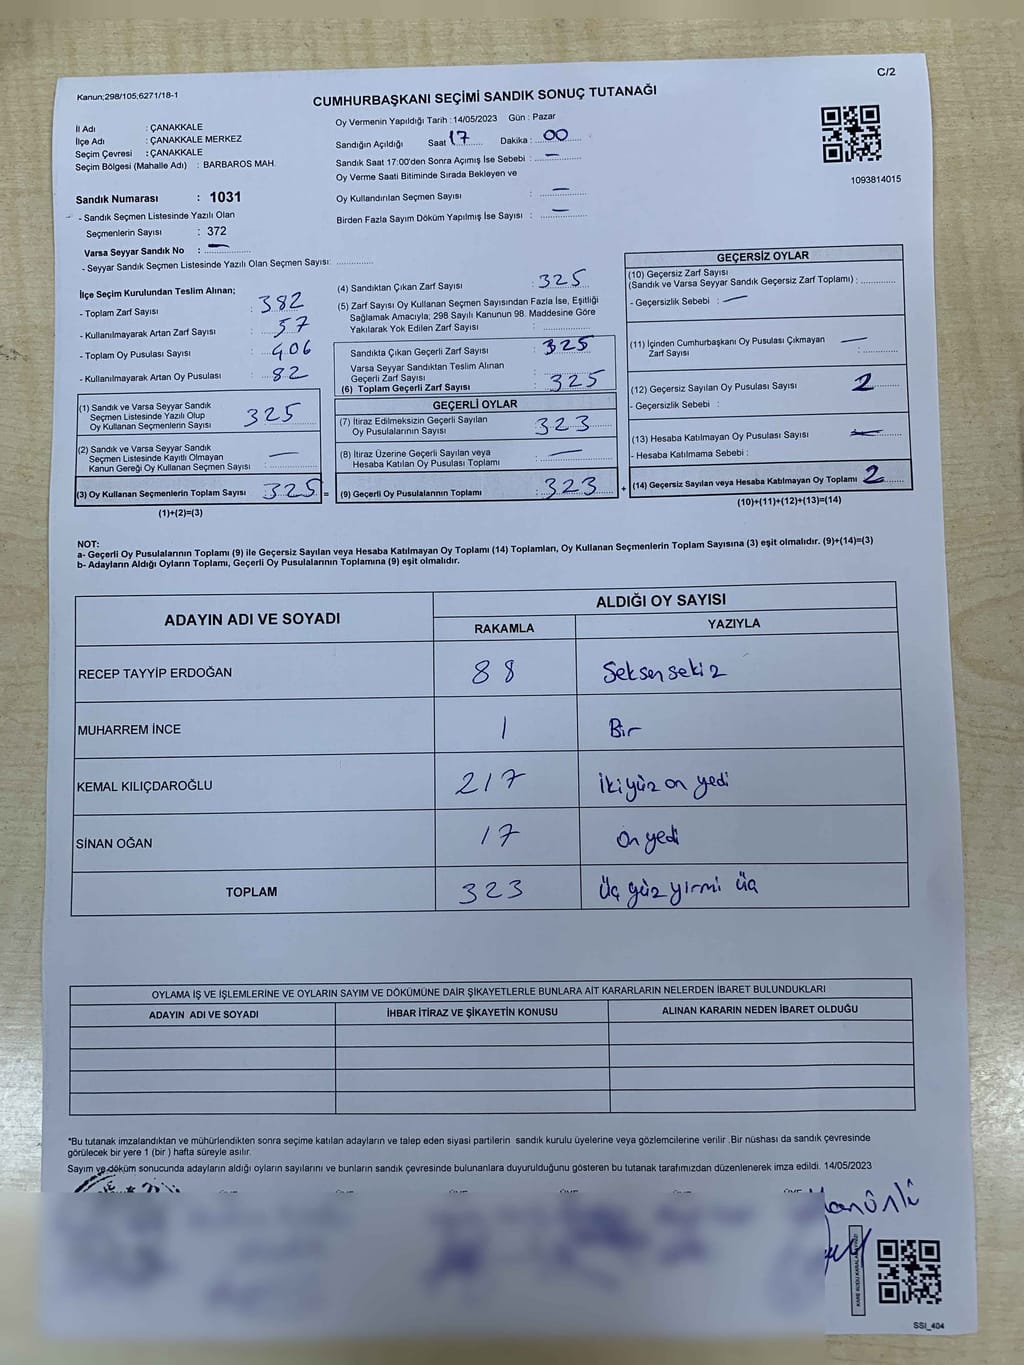 C/2
Kanun;298/105;6271/18-1
CUMHURBAŞKANI SEÇİMİ SANDIK SONUÇ TUTANAĞI
İl Adı : ÇANAKKALE
İlçe Adı : ÇANAKKALE MERKEZ
Seçim Çevresi : ÇANAKKALE
Seçim Bölgesi (Mahalle Adı) : BARBAROS MAH.
Oy Vermenin Yapıldığı Tarih : 14/05/2023 Gün : Pazar
Sandığın Açıldığı Saat 17 Dakika : 00
Sandık Saat 17:00'den Sonra Açımış İse Sebebi : —
Oy Verme Saati Bitiminde Sırada Bekleyen ve
Oy Kullandırılan Seçmen Sayısı : —
Birden Fazla Sayım Döküm Yapılmış İse Sayısı : —
1093814015
Sandık Numarası : 1031
- Sandık Seçmen Listesinde Yazılı Olan
Seçmenlerin Sayısı : 372
Varsa Seyyar Sandık No : —
- Seyyar Sandık Seçmen Listesinde Yazılı Olan Seçmen Sayısı:
İlçe Seçim Kurulundan Teslim Alınan;
- Toplam Zarf Sayısı : 382
- Kullanılmayarak Artan Zarf Sayısı : 57
- Toplam Oy Pusulası Sayısı : 406
- Kullanılmayarak Artan Oy Pusulası : 82
(1) Sandık ve Varsa Seyyar Sandık
Seçmen Listesinde Yazılı Olup
Oy Kullanan Seçmenlerin Sayısı : 325
(2) Sandık ve Varsa Seyyar Sandık
Seçmen Listesinde Kayıtlı Olmayan
Kanun Gereği Oy Kullanan Seçmen Sayısı : —
(3) Oy Kullanan Seçmenlerin Toplam Sayısı 325 =
(1)+(2)=(3)
(4) Sandıktan Çıkan Zarf Sayısı : 325
(5) Zarf Sayısı Oy Kullanan Seçmen Sayısından Fazla İse, Eşitliği
Sağlamak Amacıyla; 298 Sayılı Kanunun 98. Maddesine Göre
Yakılarak Yok Edilen Zarf Sayısı :
Sandıkta Çıkan Geçerli Zarf Sayısı : 325
Varsa Seyyar Sandıktan Teslim Alınan
Geçerli Zarf Sayısı :
(6) Toplam Geçerli Zarf Sayısı : 325
GEÇERLİ OYLAR
(7) İtiraz Edilmeksizin Geçerli Sayılan
Oy Pusulalarının Sayısı : 323
(8) İtiraz Üzerine Geçerli Sayılan veya
Hesaba Katılan Oy Pusulası Toplamı : —
(9) Geçerli Oy Pusulalarının Toplamı : 323 +
GEÇERSİZ OYLAR
(10) Geçersiz Zarf Sayısı
(Sandık ve Varsa Seyyar Sandık Geçersiz Zarf Toplamı) :
- Geçersizlik Sebebi : —
(11) İçinden Cumhurbaşkanı Oy Pusulası Çıkmayan
Zarf Sayısı : —
(12) Geçersiz Sayılan Oy Pusulası Sayısı : 2
- Geçersizlik Sebebi :
(13) Hesaba Katılmayan Oy Pusulası Sayısı : —
- Hesaba Katılmama Sebebi :
(14) Geçersiz Sayılan veya Hesaba Katılmayan Oy Toplamı : 2
(10)+(11)+(12)+(13)=(14)
NOT:
a- Geçerli Oy Pusulalarının Toplamı (9) ile Geçersiz Sayılan veya Hesaba Katılmayan Oy Toplamı (14) Toplamları, Oy Kullanan Seçmenlerin Toplam Sayısına (3) eşit olmalıdır. (9)+(14)=(3)
b- Adayların Aldığı Oyların Toplamı, Geçerli Oy Pusulalarının Toplamına (9) eşit olmalıdır.
ADAYIN ADI VE SOYADI
ALDIĞI OY SAYISI
RAKAMLA YAZIYLA
RECEP TAYYİP ERDOĞAN 88 Seksensekiz
MUHARREM İNCE 1 Bir
KEMAL KILIÇDAROĞLU 217 İkiyüz on yedi
SİNAN OĞAN 17 On yedi
TOPLAM 323 Üç yüz yirmi üç
OYLAMA İŞ VE İŞLEMLERİNE VE OYLARIN SAYIM VE DÖKÜMÜNE DAİR ŞİKAYETLERLE BUNLARA AİT KARARLARIN NELERDEN İBARET BULUNDUKLARI
ADAYIN ADI VE SOYADI İHBAR İTİRAZ VE ŞİKAYETİN KONUSU ALINAN KARARIN NEDEN İBARET OLDUĞU
*Bu tutanak imzalandıktan ve mühürlendikten sonra seçime katılan adayların ve talep eden siyasi partilerin sandık kurulu üyelerine veya gözlemcilerine verilir .Bir nüshası da sandık çevresinde
görülecek bir yere 1 (bir ) hafta süreyle asılır.
Sayım ve döküm sonucunda adayların aldığı oyların sayılarını ve bunların sandık çevresinde bulunanlara duyurulduğunu gösteren bu tutanak tarafımızdan düzenlenerek imza edildi. 14/05/2023
SSI_404